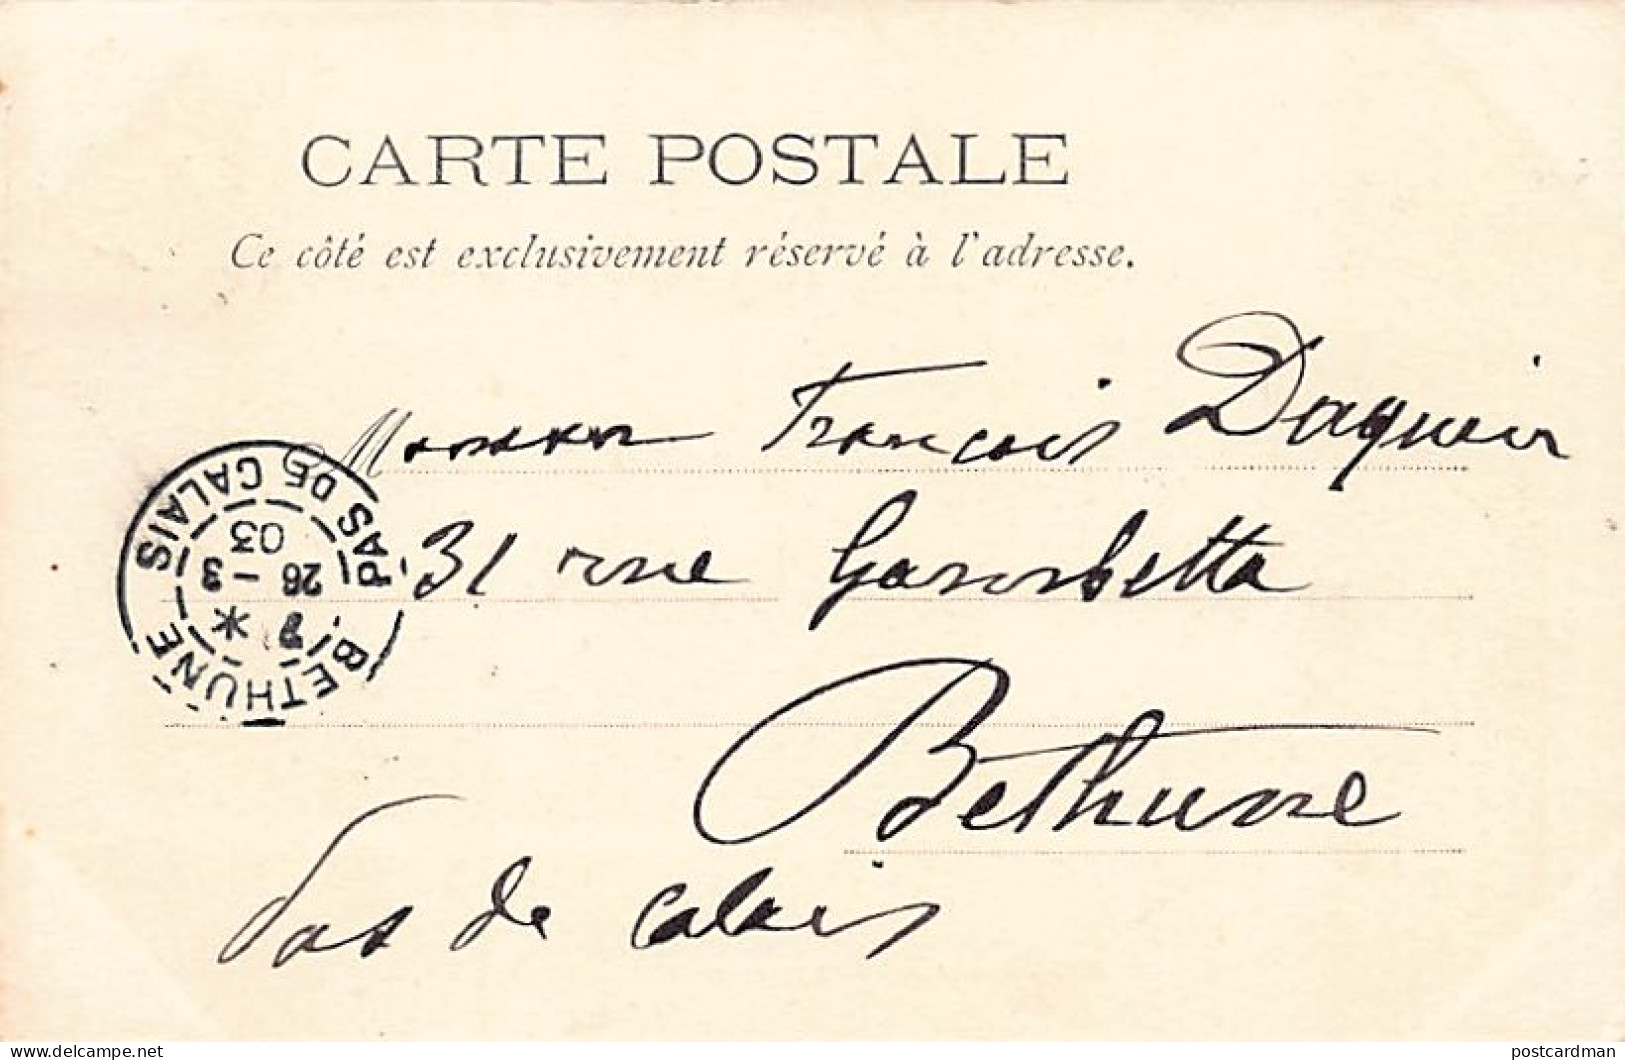 CARTE POSTALE
Ce côté est exclusivement réservé à l'adresse.
Monsieur François Daquin
31 rue Gambetta
Bethune
Pas de Calais
BETHUNE
PAS DE CALAIS
26 - 3
03
delcampe.net
postcardman